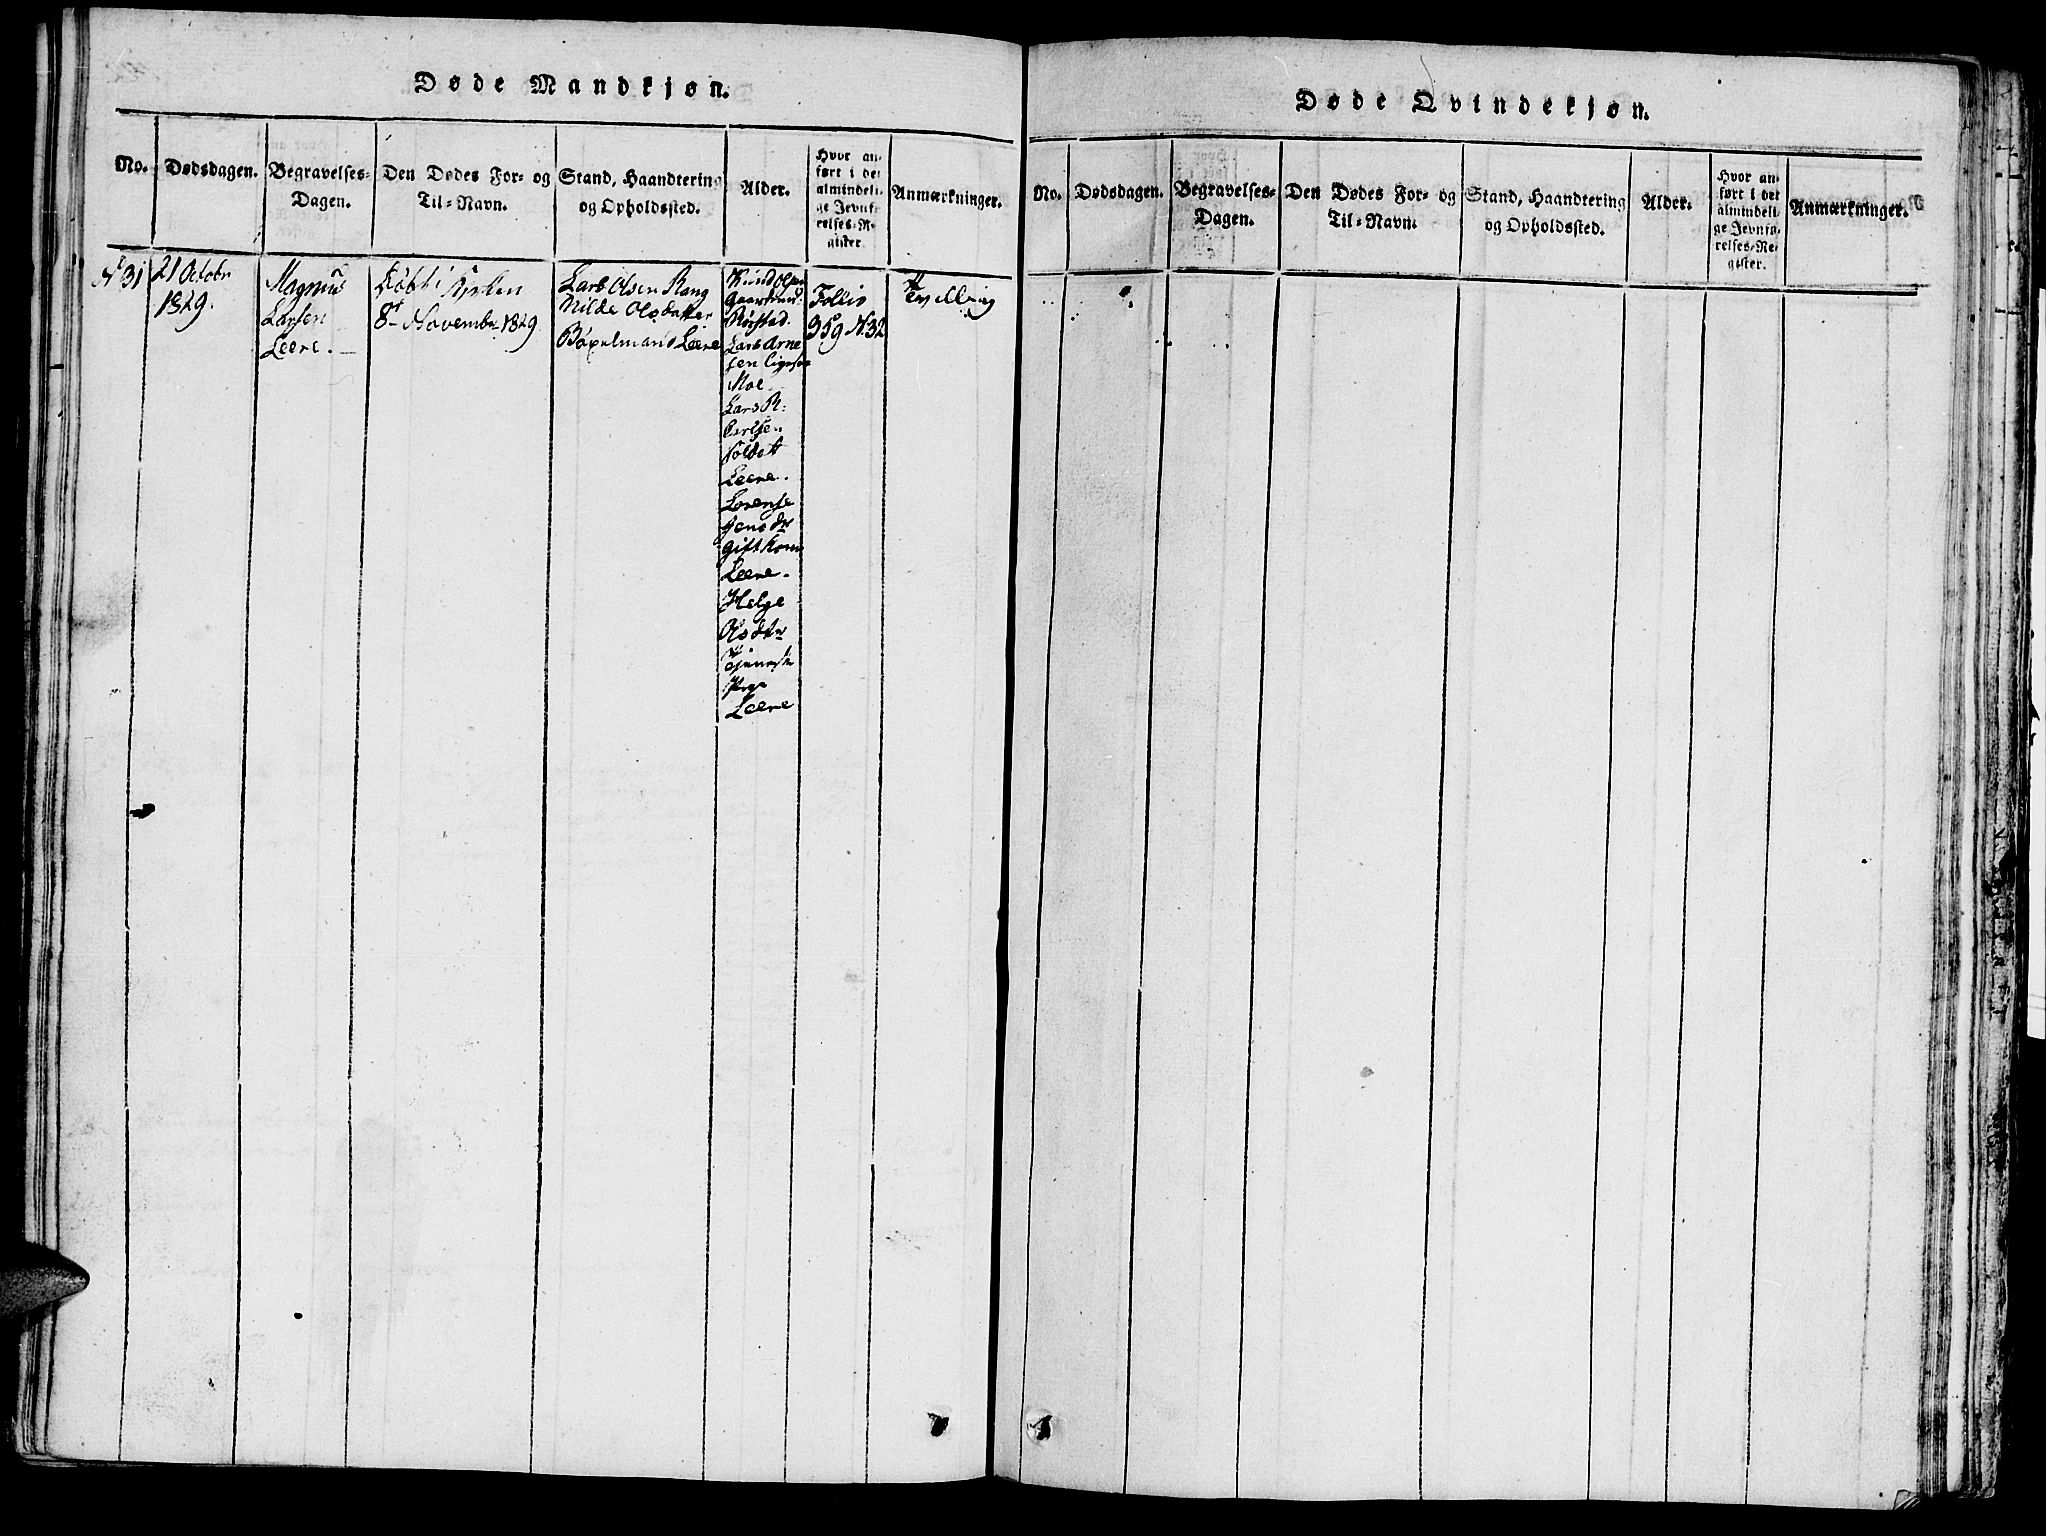 Døde Mandkjøn.
No.
Dødsdagen.
Begravelses-
Dagen.
Den Dødes For- og
Til-Navn.
Stand, Haandtering
og Opholdssted.
Alder.
Hvor an-
ført i det
almindeli-
ge Jevnfø-
relses-Re-
gister.
Anmærkninger.
N 31
21 Octobr
1829.
Magnus
Larsen
Leere.
Døbt i Kirken
8de November 1829
Lars Olsen Rang
nilde Olsdatter
Leere
Knud Olsen
Gaardman
Lars Arne
sen
Moe
Lars
Leere.
Lorense
Jensdtr
gift kone
Leere.
Helge
Olsdtr
Tjeneste
Pige
Leere
Follio
359 N 32
Tvilling
Døde Qvindekjøn.
No.
Dødsdagen.
Begravelses-
Dagen.
Den Dødes For- og
Til-Navn.
Stand, Haandtering
og Opholdssted.
Alder.
Hvor an-
ført i det
almindeli-
ge Jevnfø-
relses-Re-
gister.
Anmærkninger.